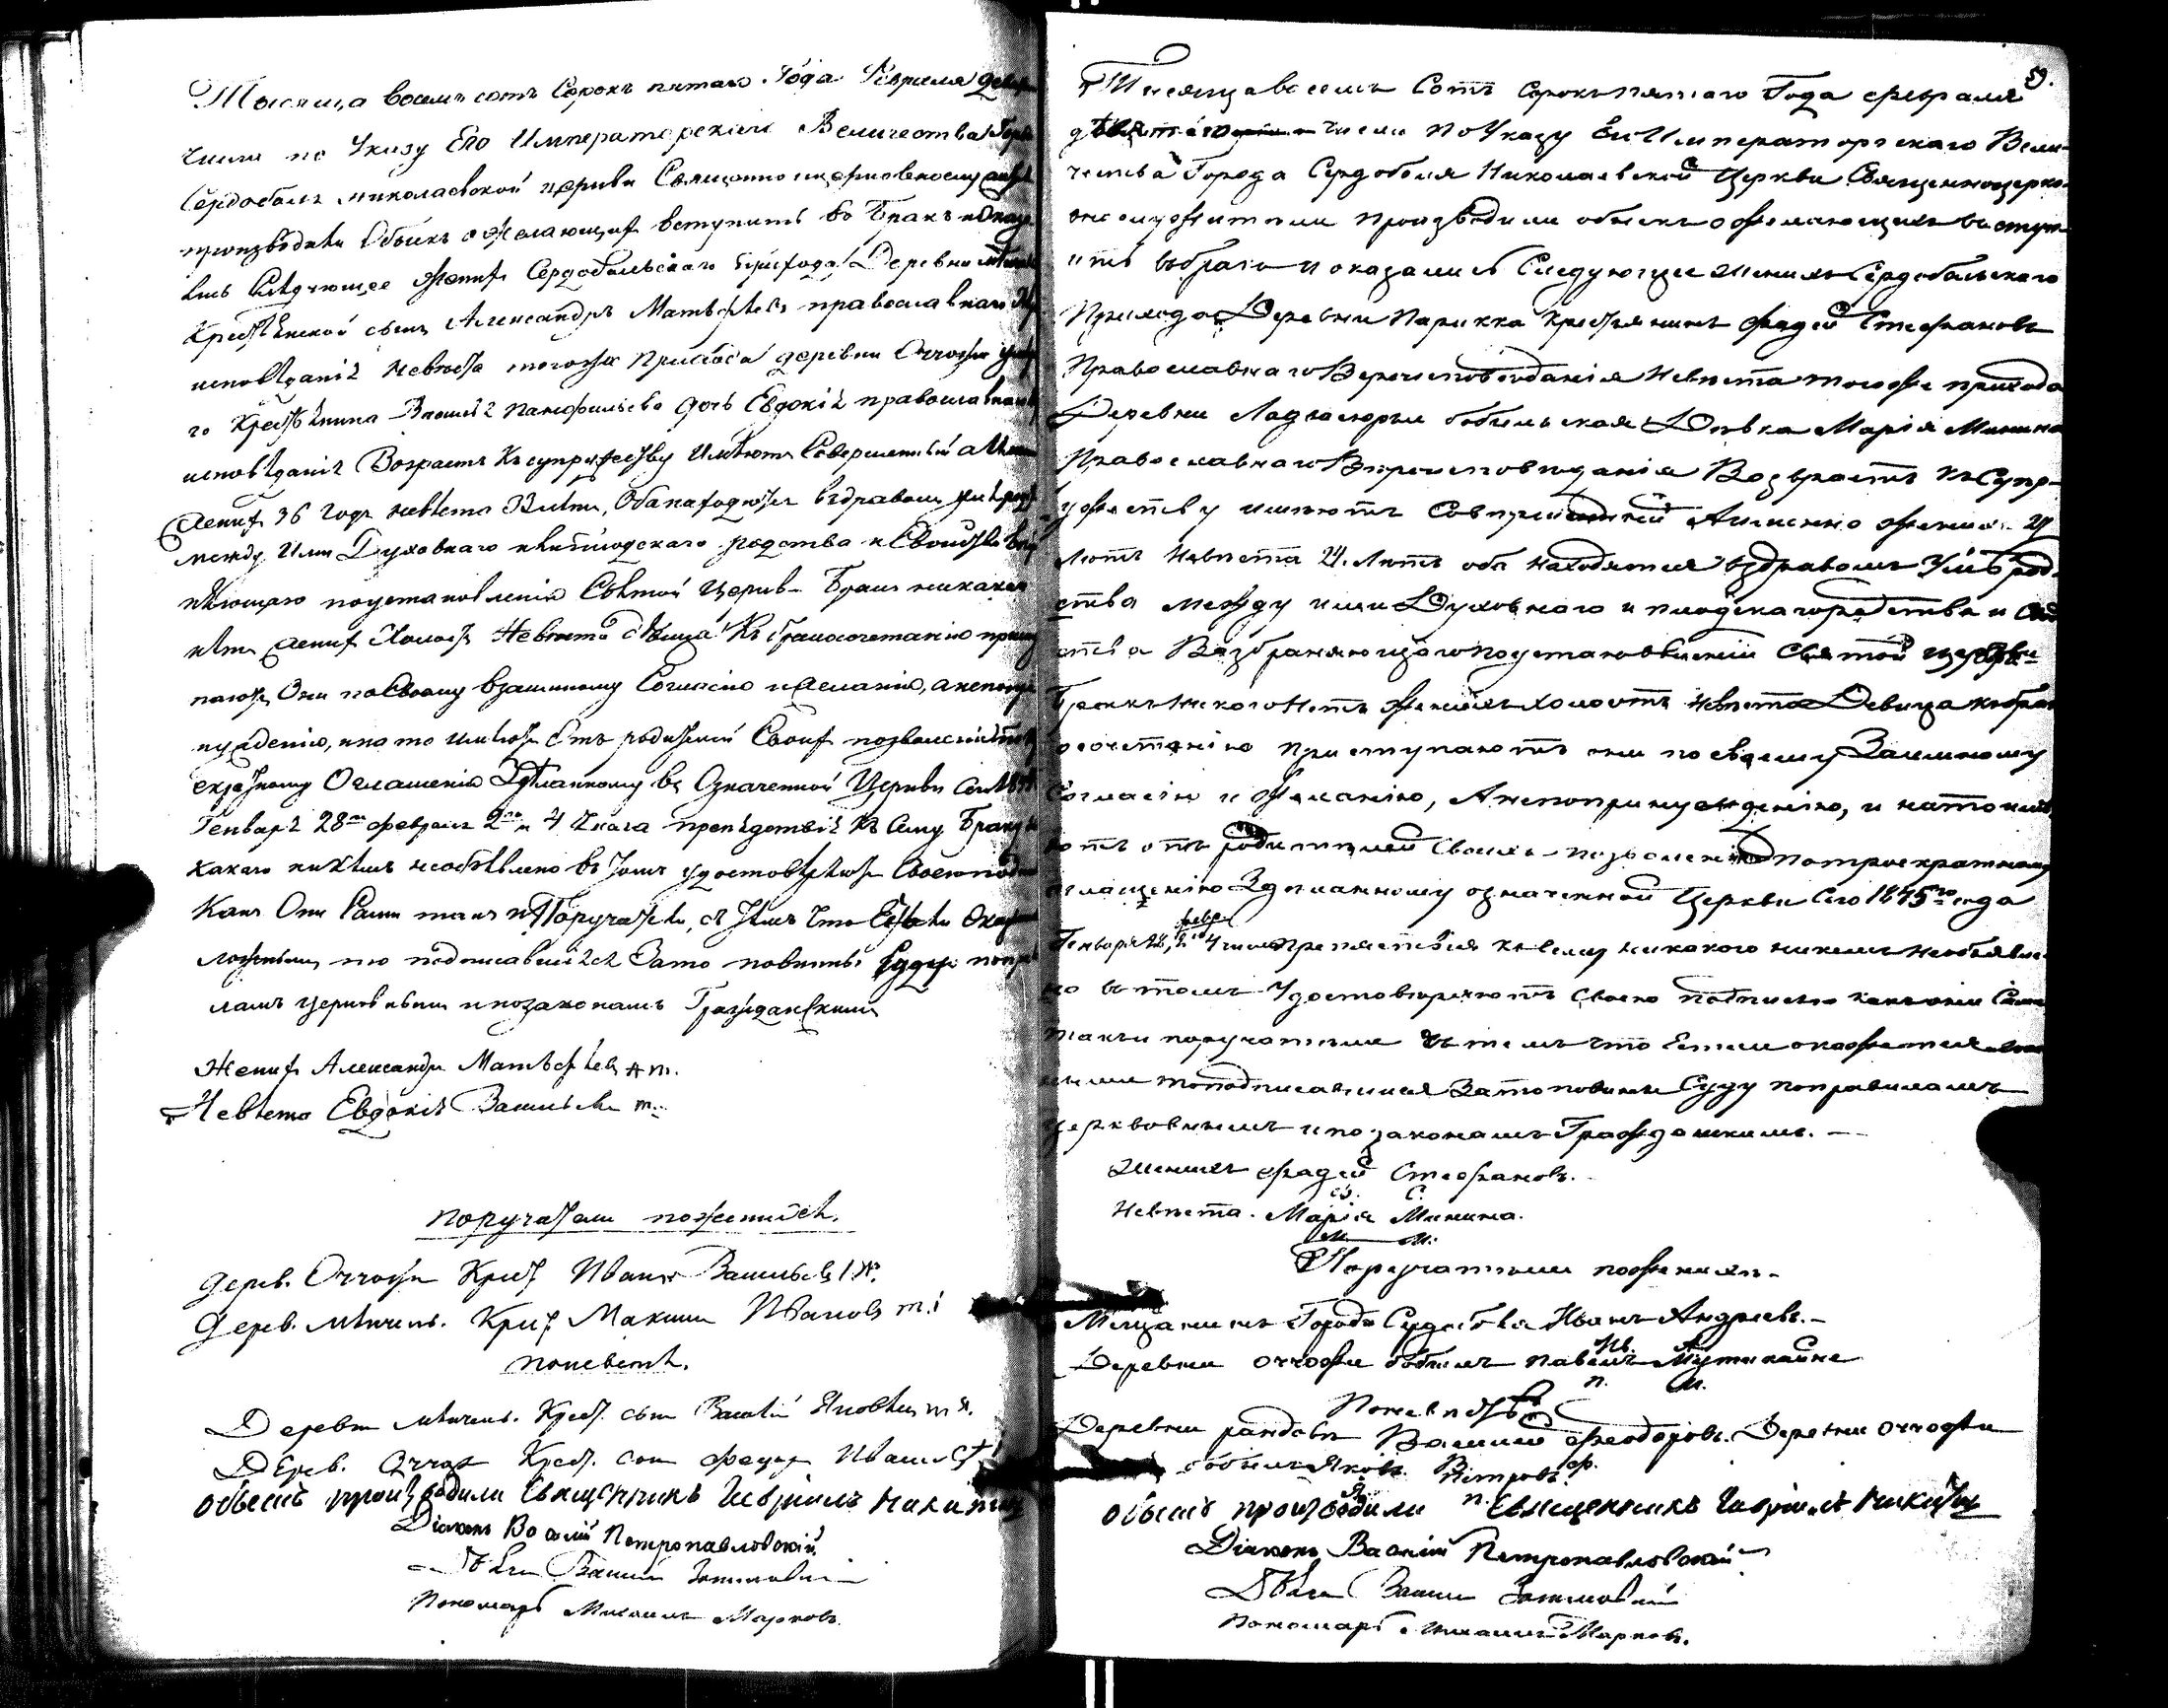 Тысяща восемь сотъ Сорокъ пятаго Года Февраля
числа по Указу Его Императорскаго Величества
Сердоболь николаевской церкви Священно церковнослужит
произвадили Обыскъ о желающихъ вступить во Бракъ и Оказа
лись Слѣдующее Женихъ Сердобольскаго прихода Деревни
Крестьянской сынъ Александръ Матвѣевъ православнаго
исповѣданія невѣста тогоже Прихода деревни Оччоуи
го Крестьянина Василья Панфильева дочь Евдокія православнаго
исповѣданія Возрастъ Къ супружеству Имѣютъ Совершенный а
женихъ 36 годъ невѣста лѣтъ, Оба находются въ здравомъ умѣ
между Ими Духовнаго и плотскаго родства и Свойства
няющаго поустановленію Святой Церкви Бракъ никакаго
нѣтъ женихъ Холостъ Невѣста дѣвица Къ бракосочетанію присту
паютъ Они по Своему взаимному Согласію и желанію, а непопри
нужденію, и на то имѣютъ Отъ родителей Своихъ позволеніе
екратному Оглашенію Здѣланному въ Означенной Церкви
Генваря 28го февраля 2го и 4 числа препядствія Къ Сему Браку
какаго никѣмъ необъявлено въ томъ удостовѣряютъ Своею
Какъ Они Сами такъ и Поручатели, съ тѣмъ что Естьли Окаж
ложнымъ то подписавшіяся Зато повинны Суду по прави
ламъ церковнымъ и позаконамъ Гражданскимъ
Женихъ Александръ Матвѣевъ
Невѣста Евдокія Васильева
поручатели поженихѣ.
дерев. Оччоуи Крест Иванъ Васильевъ
дерев. Крест Максимъ Ивановъ
поневестѣ.
Деревни Крест. сынъ Василій Яковлевъ
Дерев. Крест. сынъ Федоръ Ивановъ
обыскъ произвадили Священникъ Гавріилъ Никитинъ
Діаконъ Василій Петропавловскій
Пономарь Михаилъ Марковъ.
59.
Тысяща восемь Сотъ Сорокъ пятаго Года февраля
девятаго числа по Указу Его Императорскаго Вели-
чества Города Сердоболя Николаевской Церкви Священноцерко-
внослужители произвадили обыскъ о желающихъ вступ-
ить въ бракъ и оказались Следующее женихъ Сердобольскаго
Прихода Деревни Парикка крестьянинъ Фадей Стефановъ
Православнаго Вероисповеданія Невѣста тогоже прихода
Деревни бобыльская Дѣвка Марія Минина
Православнаго Вѣроисповѣданія Возврастъ къ Супр-
ужеству имѣютъ Совершенный Аименно женихъ
лѣтъ Невѣста 21. лѣтъ оба находятся въздравомъ Умѣ род-
ства между ими Духовнаго и плодскаго родства и
ства Возбраняющаго поустановленіи Святой церкви
Бракъ никого нетъ женихъ холостъ невѣста Девица къ брак
осочетанію приступаютъ они по своему Заимному
Согласію и Желанію, А непопринужденію, и на то имѣ
ютъ отъ родителей Своихъ позволеніе потроекратному
оглашенію Здѣланному означенной Церкви Сего 1845го года
Генваря 28, февр 2 и 4 чисел препятствія къ сему никакого никемъ необъявле-
но въ томъ Удостовѣряютъ своею подписью какъ они Сами
такъ и поручатели Съ темъ что Естли окажется
ными то подписавшіися Зато повинны Суду поправиламъ
церквовнымъ и по законамъ Гражданскимъ.
Женихъ Фадей Стефановъ.
Ф. С.
Невѣста. Марія Минина.
М. М.
Поручатели поженихѣ.
Мещанинъ Города Сердобля Иванъ Андреевъ.
Ив. А.
Деревни оччожи бобыль Павелъ Мутикайне
п. м.
Поневѣстѣ
Деревни рандовъ Василій Феодоровъ. Деревни оччожи
В. Ф.
бобыль Яковъ Петровъ
Я. п.
обыскъ произвадили Священникъ Гавріилъ Никитин
Діаконъ Василій Петропавловскій
Пономарь Михаилъ Марковъ.